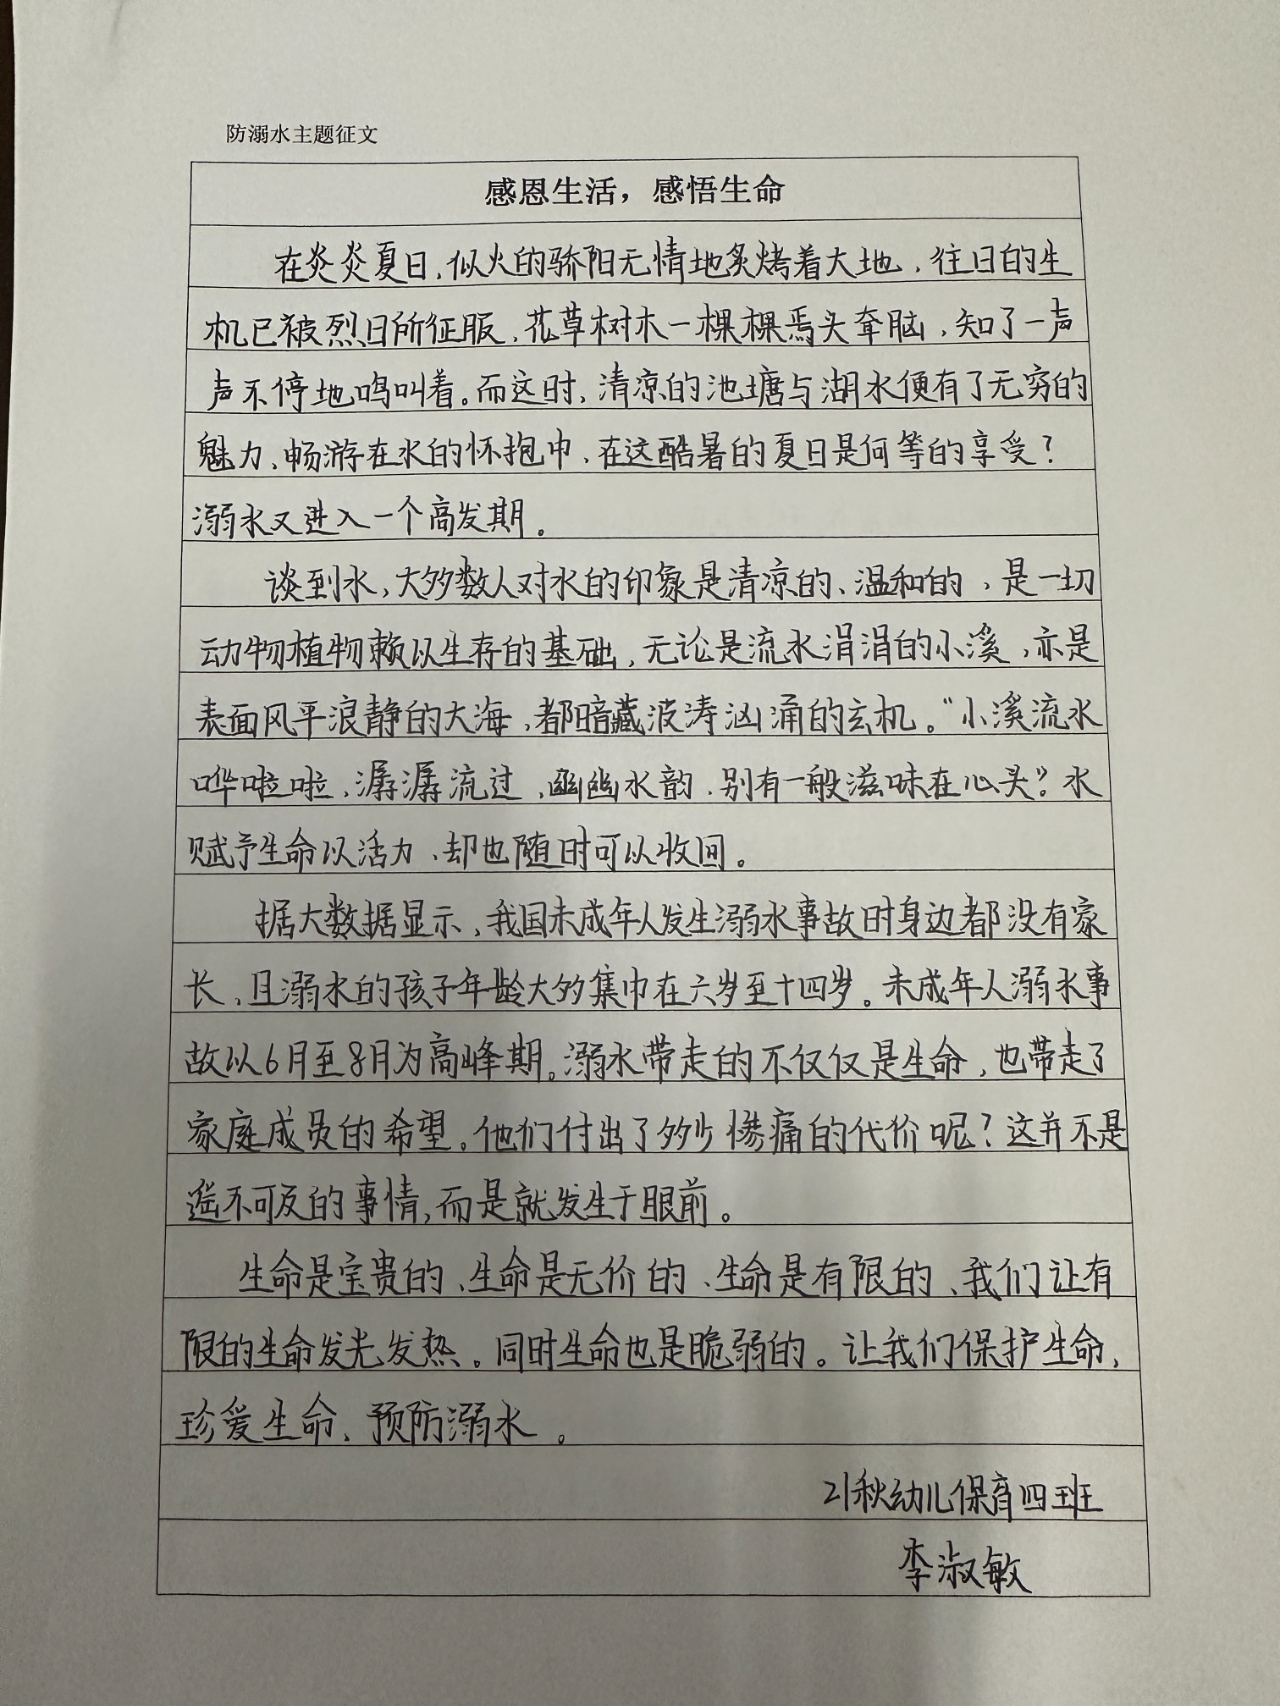 防溺水主题征文
感恩生活，感悟生命
在炎炎夏日，似火的骄阳无情地炙烤着大地，往日的生
机已被烈日所征服，花草树木一棵棵焉头耷脑，知了一声
声不停地鸣叫着。而这时，清凉的池塘与湖水便有了无穷的
魅力、畅游在水的怀抱中、在这酷暑的夏日是何等的享受？
溺水又进入一个高发期。
谈到水，大多数人对水的印象是清凉的、温和的，是一切
动物植物赖以生存的基础，无论是流水涓涓的小溪，亦是
表面风平浪静的大海，都暗藏波涛汹涌的玄机。“小溪流水
哗啦啦，潺潺流过，幽幽水韵，别有一般滋味在心头”。水
赋予生命以活力、却也随时可以收回。
据大数据显示，我国未成年人发生溺水事故时身边都没有家
长、且溺水的孩子年龄大多集中在六岁至十四岁。未成年人溺水事
故以6月至8月为高峰期。溺水带走的不仅仅是生命，也带走了
家庭成员的希望。他们付出了多少惨痛的代价呢？这并不是
遥不可及的事情，而是就发生于眼前。
生命是宝贵的、生命是无价的、生命是有限的、我们让有
限的生命发光发热。同时生命也是脆弱的。让我们保护生命，
珍爱生命、预防溺水。
21秋幼儿保育四班
李淑敏